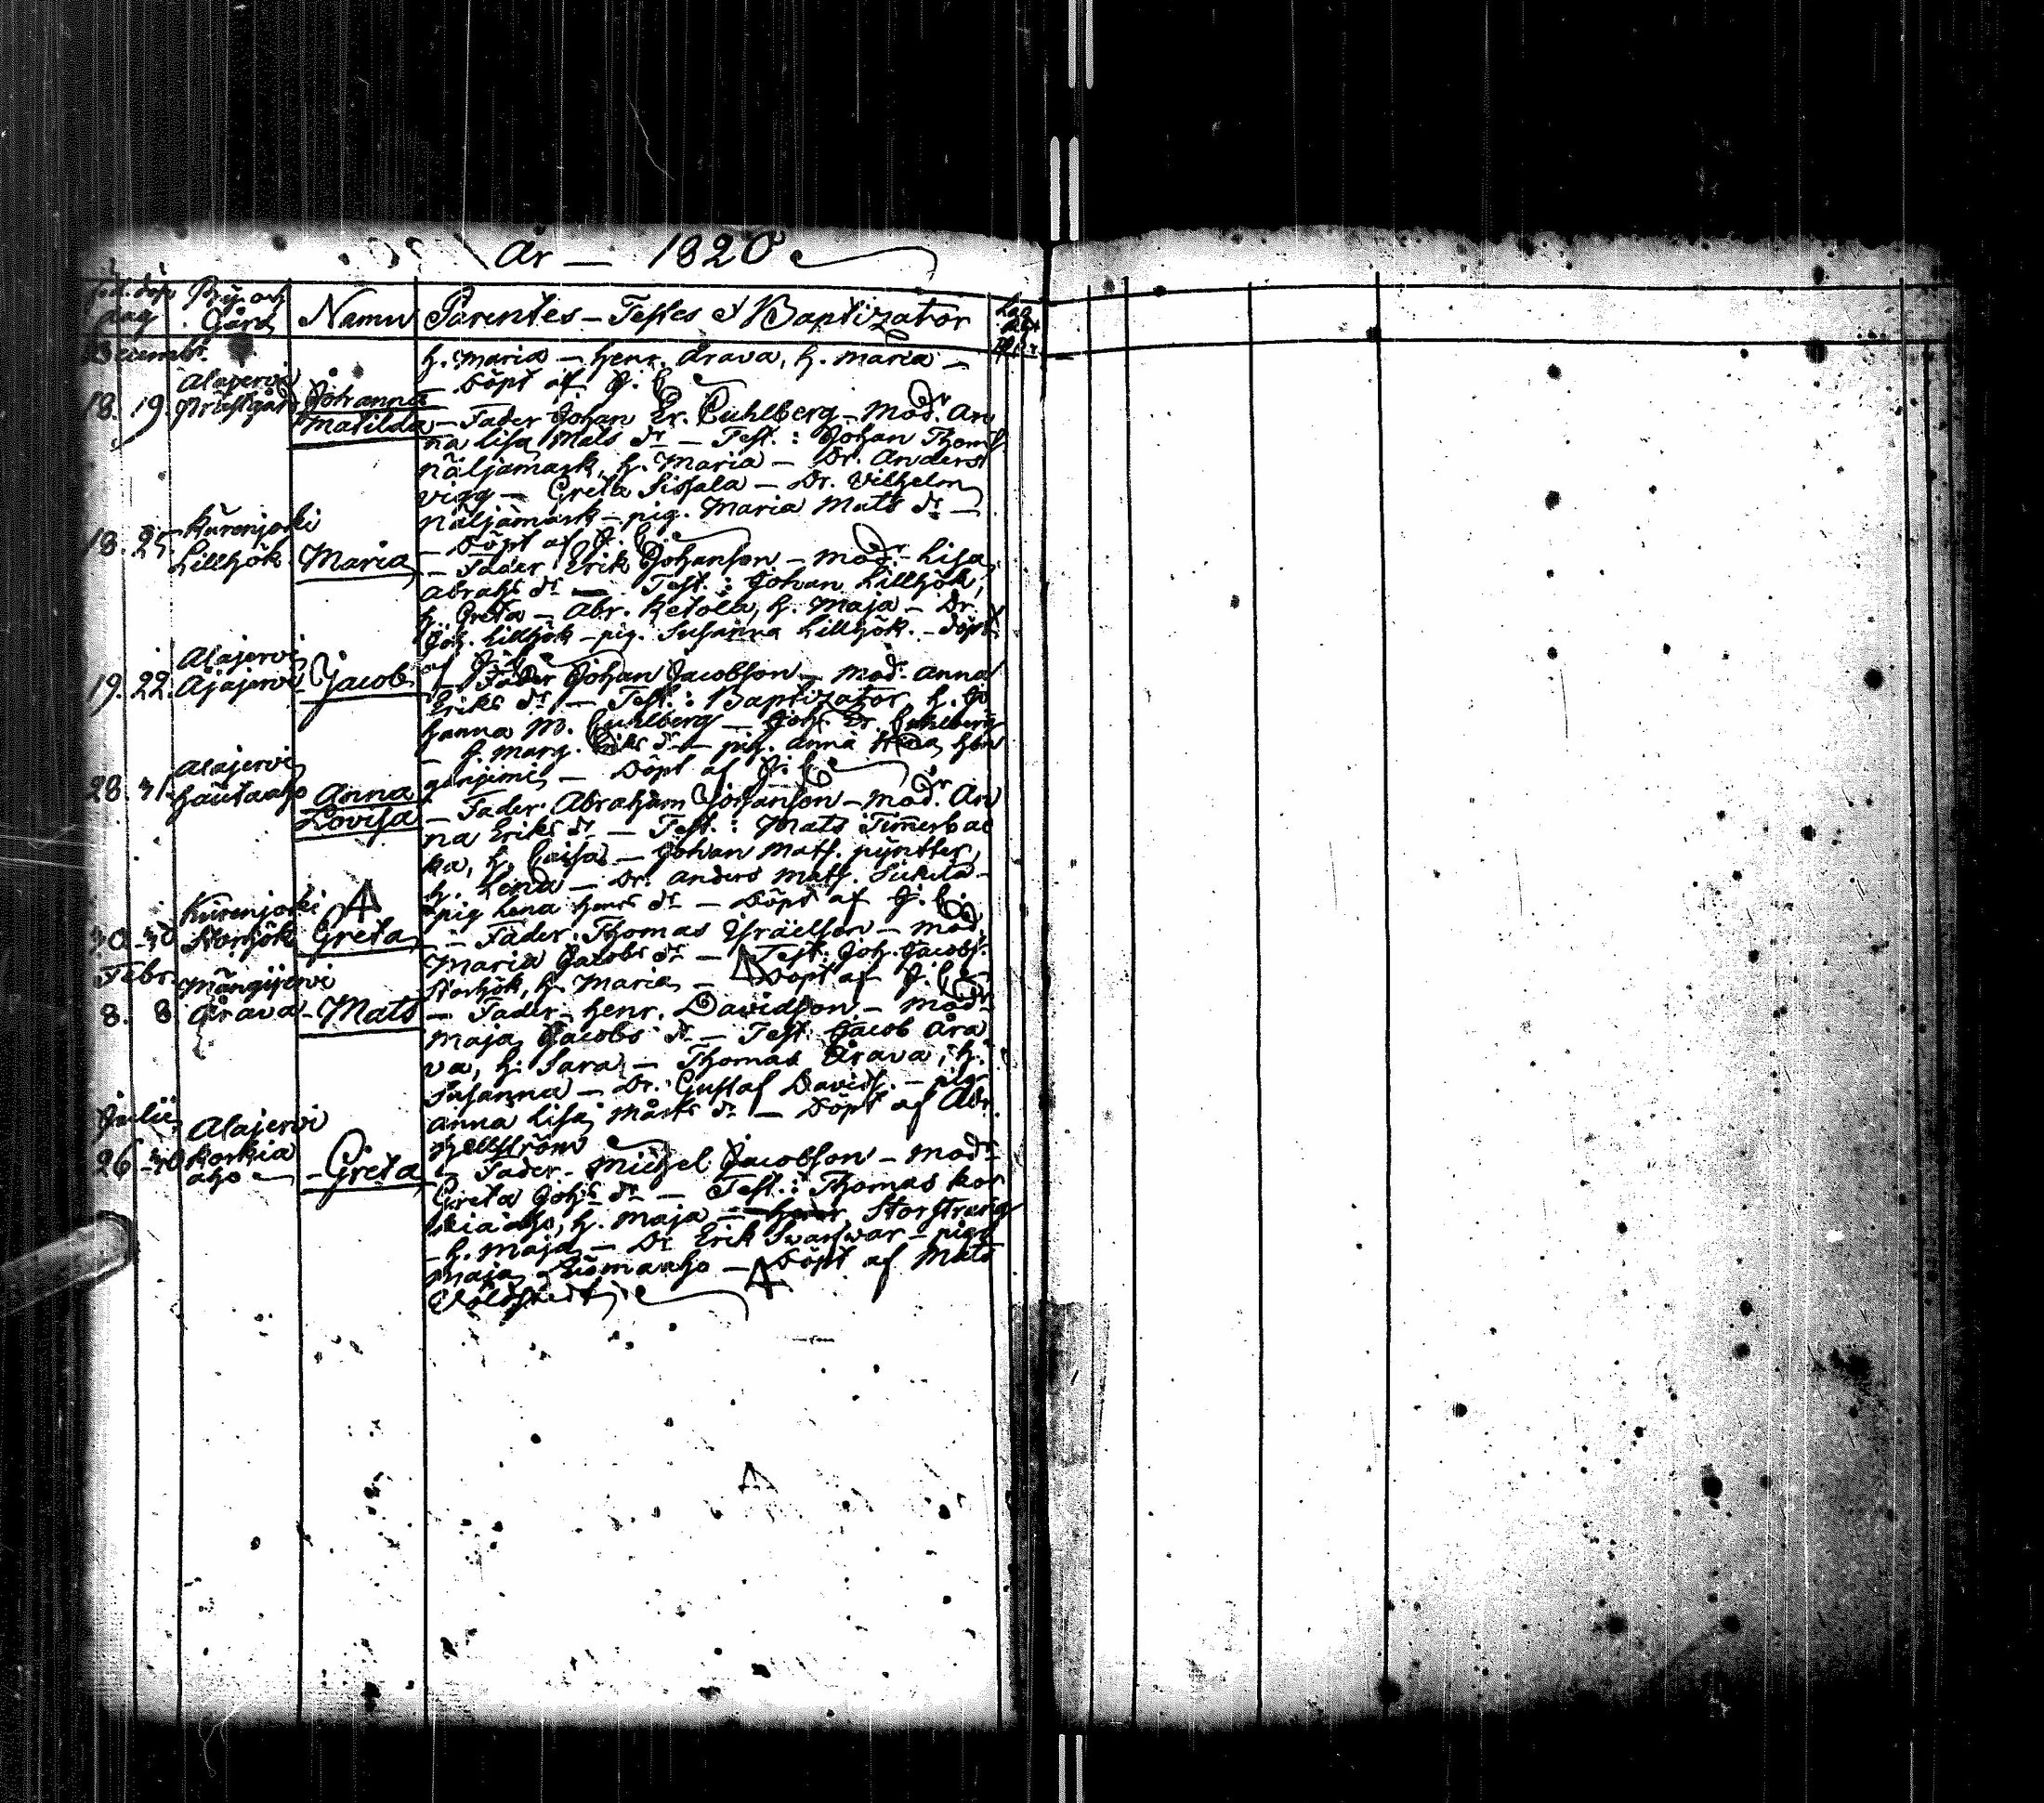 År — 1820
föd. döp. dag By och Gård Namn Parentes — Testes & Baptizator
Decembr. h. Maria — Henr. Årava, h. Maria —
— Döpt af J. C.
18. 19. Alajervi Prästgård Johanna Matilda — Fader Johan Er. Cuhlberg — Modr. An
na Lisa Mats dr — Test.: Johan Thoms
Näljämark, h. Maria — Dr. Anders
Vigg — Greta Sissala — Dr. Vilhelm
Näljämark — pig. Maria Mats dr —
— Döpt af J. C.
18. 25. Kurenjoki Lillhök Maria — Fader Erik Johanson — Modr. Lisa
Abrahs dr — Test.: Johan Lillhök,
h. Greta — Abr. Ketola, h. Maja — Dr.
Joh. Lillhök — pig. Susanna Lillhök. — Döpt
af J. C.
19. 22. Alajervi Ajajervi Jacob — Fader Johan Jacobson — Modr. Anna
Eriks dr — Test.: Baptizator h. Jo
hanna M. Cuhlberg — Joh. Er. Cuhlberg
— h. Marg. Eriks dr — pig. Anna
— Döpt af J. C.
28. 31. Alajervi Hautaaho Anna Lovisa — Fader Abraham Johanson — Modr. An
na Eriks dr — Test.: Mats Timmerbac
ka, h. Caisa — Johan Mats. Pyntter,
h. Lena — Dr. Anders Mats. Sukela —
pig Lena Henrs dr — Döpt af J. C.
30. 30 Kurenjoki Storhök Greta — Fader. Thomas Israëlson — Mod.
Maria Jacobs dr — Test: Joh. Jacobs.
Storhök, h. Maria — Döpt af J. C.
Febr. 8. 8 Mängijervi Årava Mats — Fader. Henr. Davidson — Modr
Maja Jacobs dr — Test. Jacob Åra
va, h. Sara — Thomas Årava, h.
Susanna — Dr. Gustaf Davids. — pig.
Anna Lisa Mårts dr — Döpt af Abr.
Hellström
Julii 26 30 Alajervi Korkia aho Greta — Fader. Michel Jacobson — Modr
Greta Johs dr — Test.: Thomas Kor
kiaaho, h. Maja — Storstreng
— h. Maja — Dr Erik Svanswar — pig.
Maja — Döpt af Mats